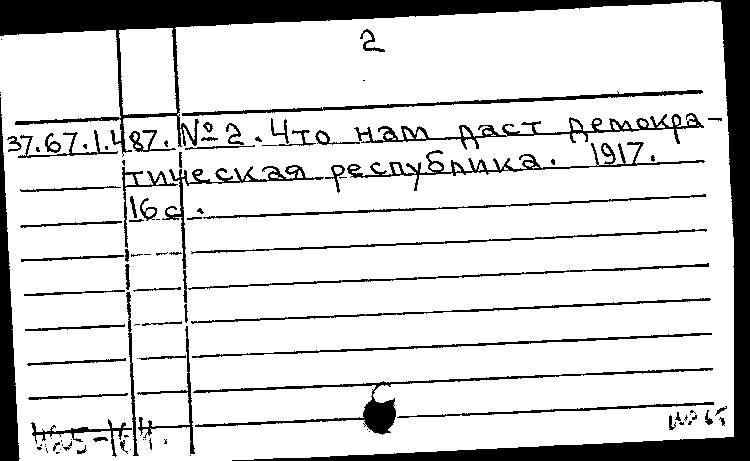 2
37.67.1.487. № 2. Что нам даст демокра-
тическая республика. 1917.
16 с.